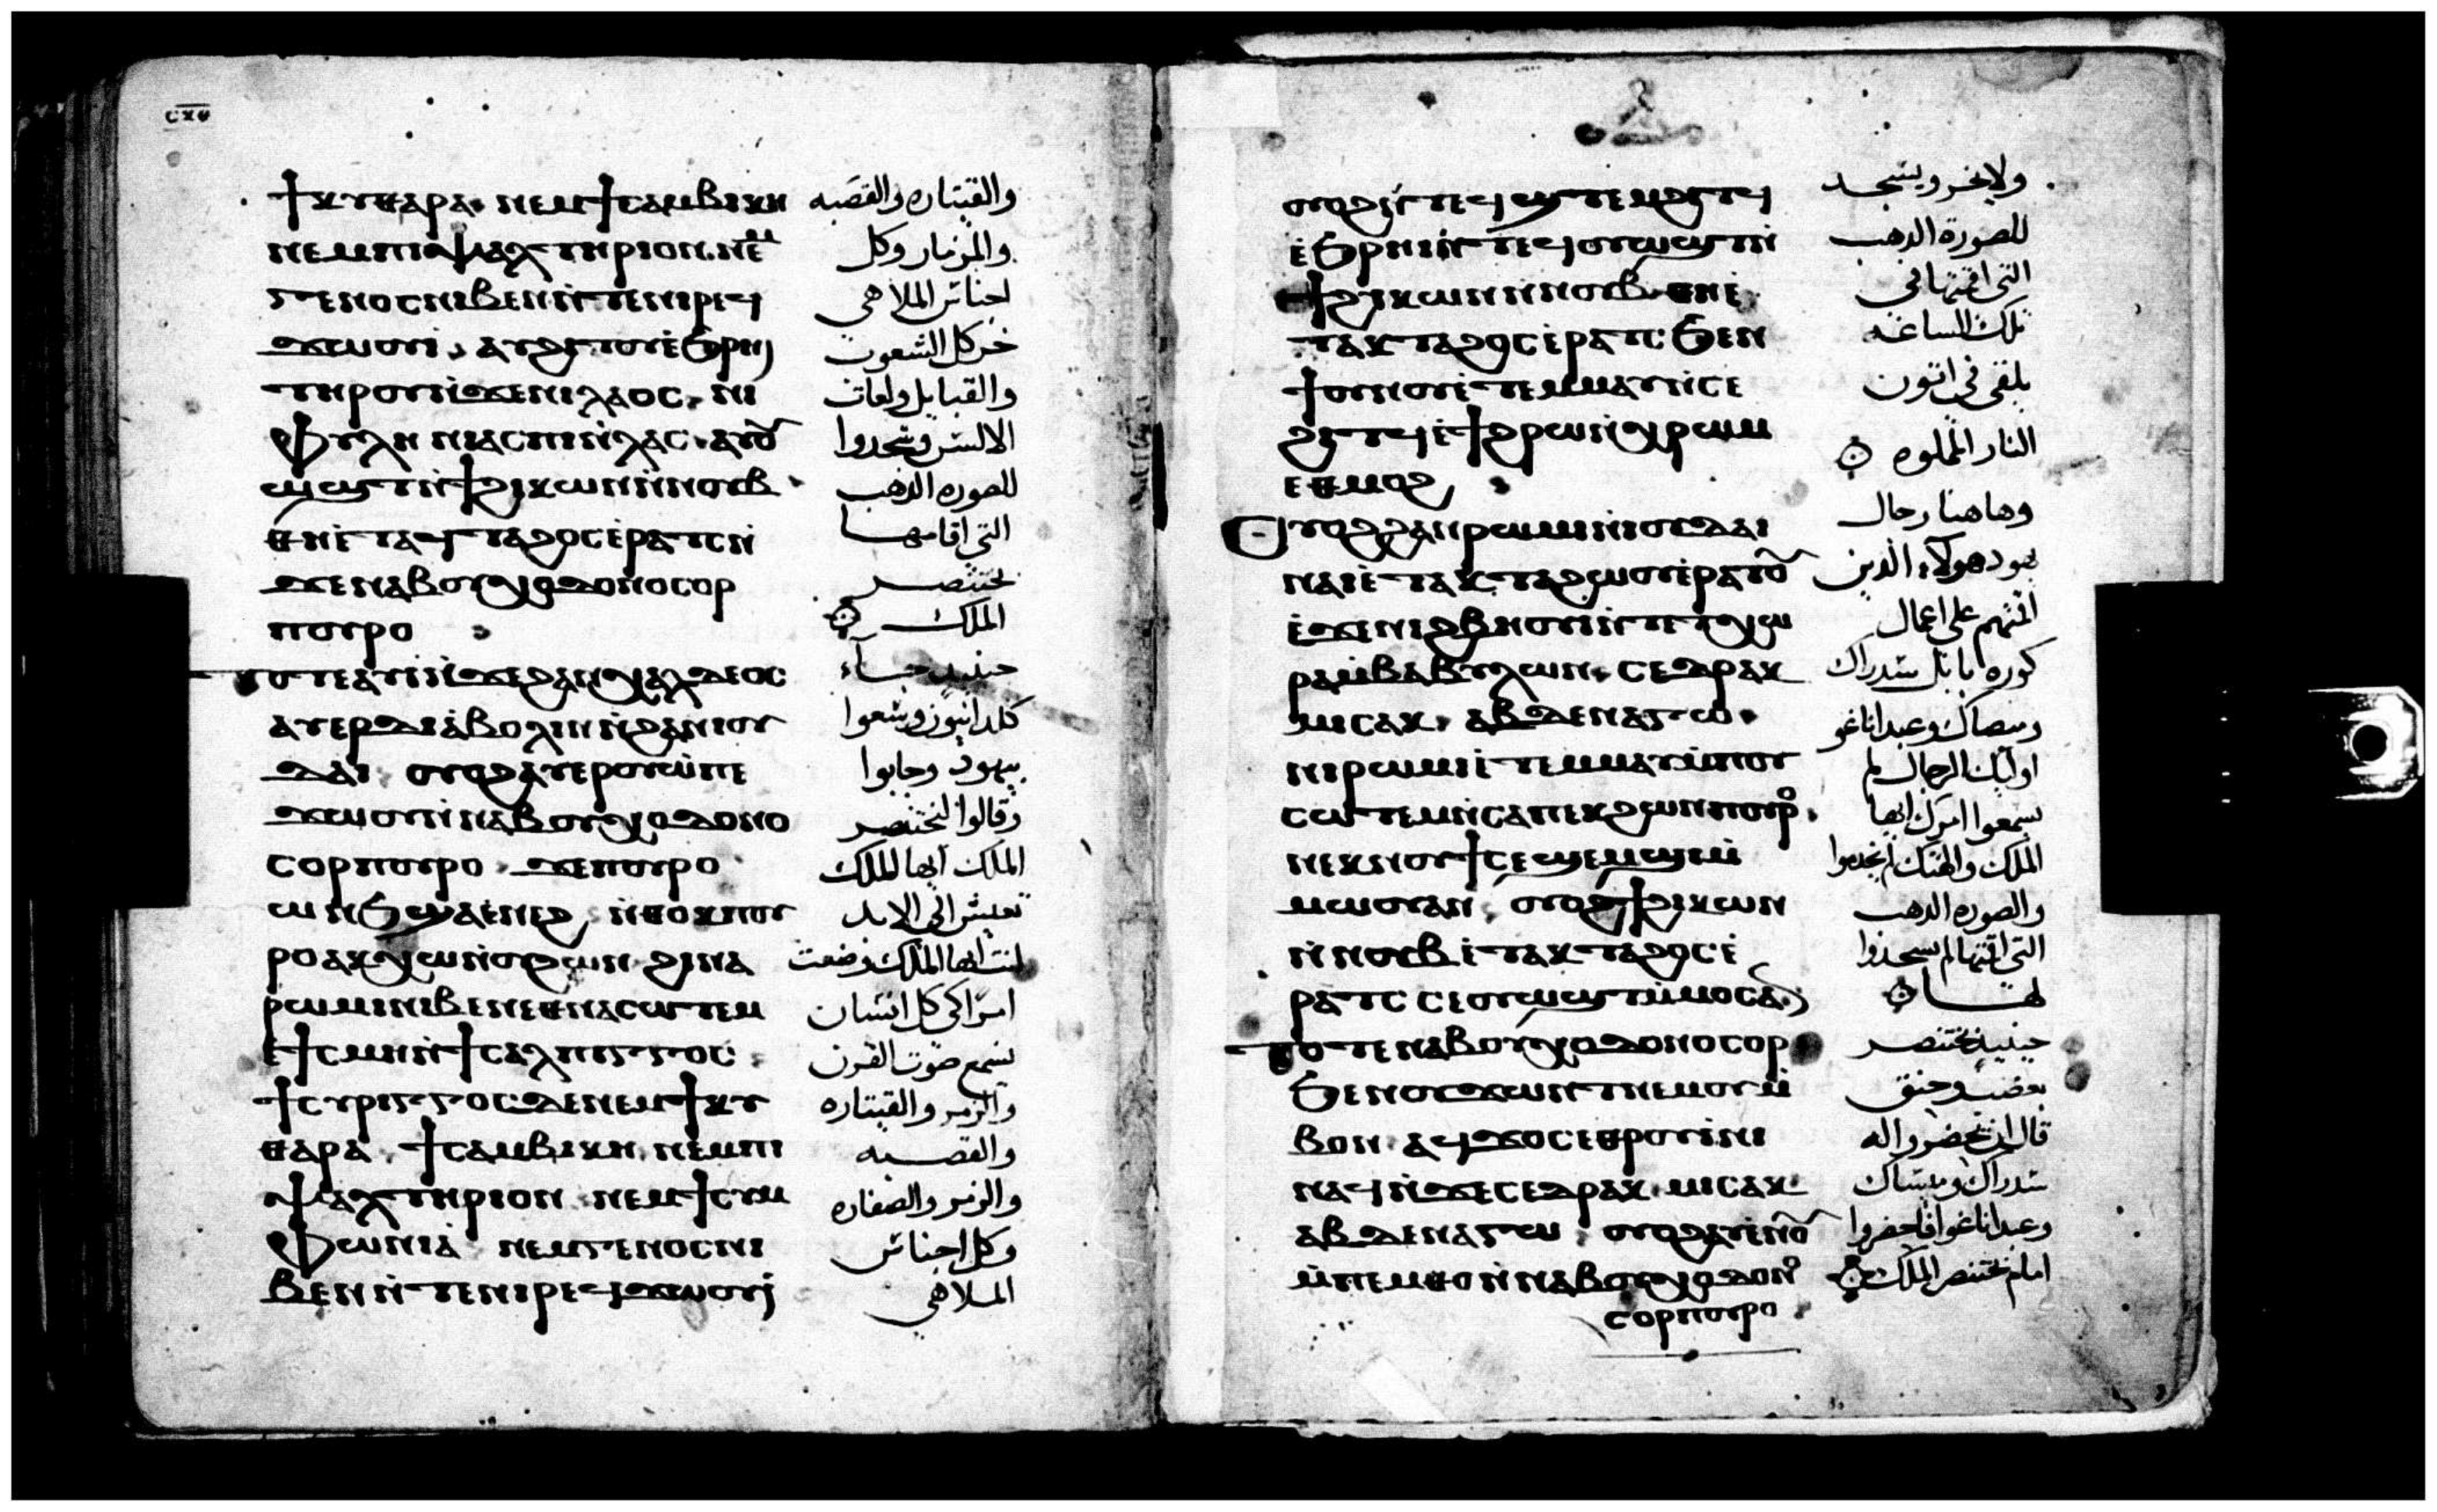 ⲥⲝⲑ
ϯⲕⲩⲑⲁⲣⲁ ⲛⲉⲙϯⲥⲁⲙⲃⲓⲕⲏ
ⲛⲉⲙⲡⲓⲯⲁⲗⲧⲏⲣⲓⲟⲛ ⲛⲉⲙ
ⲅⲉⲛⲟⲥⲛⲓⲃⲉⲛⲛ̀ⲧⲉⲛⲓⲣⲉϥ
ϫⲱⲟⲩⲓ ⲁⲩϩⲓⲧⲟⲩⲉ̀ϧⲣⲏⲓ
ⲧⲏⲣⲟⲩⲛ̀ϫⲉⲛⲓⲗⲁⲟⲥ ⲛⲓ
ⲫⲩⲗⲏ ⲛⲓⲁⲥⲡⲓⲛ̀ⲗⲁⲥ ⲁⲩⲟⲩ
ⲱϣⲧⲛ̀ϯϩⲓⲕⲱⲛⲛ̀ⲛⲟⲩⲃ
ⲑⲏⲉ̀ⲧⲁϥⲧⲁϩⲟⲥⲉ̀ⲣⲁⲧⲥⲛ̀
ϫⲉⲛⲁⲃⲟⲩⲭⲟⲇⲟⲛⲟⲥⲟⲣ
ⲡⲟⲩⲣⲟ
ⲧⲟⲧⲉⲁⲩⲓ̀ⲛ̀ϫⲉϩⲁⲛⲭⲁⲗⲇⲉⲟⲥ
ⲁⲩⲉⲣⲇⲓⲁⲃⲟⲗⲓⲛⲛ̀ϩⲁⲛⲓⲟⲩ
ⲇⲁⲓ ⲟⲩⲟϩⲁⲩⲉⲣⲟⲩⲱ̀ⲡⲉ
ϫⲱⲟⲩⲛ̀ⲛⲁⲃⲟⲩⲭⲟⲇⲟⲛⲟ
ⲥⲟⲣⲡⲟⲩⲣⲟ ϫⲉⲡⲟⲩⲣⲟ
ⲱⲛϧϣⲁⲉ̀ⲛⲉϩ ⲛ̀ⲑⲟⲕⲡⲟⲩ
ⲣⲟⲁⲕⲭⲱⲛ̀ⲟⲩϩⲱⲛ ϩⲓⲛⲁ
ⲣⲱⲙⲓⲛⲓⲃⲉⲛⲉⲑⲛⲁⲥⲱⲧⲉⲙ
ⲉ̀ϯⲥⲙⲏⲛ̀ϯⲥⲁⲗⲡⲓⲅⲅⲟⲥ
ϯⲥⲩⲣⲓⲅⲅⲟⲥϫⲉⲛⲉⲙϯⲕⲩ
ⲑⲁⲣⲁ ϯⲥⲁⲙⲃⲓⲕⲏ ⲛⲉⲙⲡⲓ
ⲯⲁⲗⲧⲏⲣⲓⲟⲛ ⲛⲉⲙϯⲥⲩⲙ
ⲫⲱⲛⲓⲁ̀ ⲛⲉⲙⲅⲉⲛⲟⲥⲛⲓ
ⲃⲉⲛⲛ̀ⲧⲉⲛⲓⲣⲉϥϫⲱⲟⲩⲓ
والقيتاره والقصبه
والمزمار وكل
اجناس الملاهي
خر كل الشعوب
والقبايل ولغات
الالسن وسجدوا
للصوره الذهب
التي اقامها
بختنصر
الملك
حينيذ جاء
كلدانيون وسعوا
بيهود وجابوا
وقالوا لبختنصر
الملك ايها الملك
تعيش الي الابد
انت ايها الملك وضعت
امرا كي كل انسان
يسمع صوت القرن
والزمر والقيتاره
والقصبه
والزمر والصفاره
وكل اجناس
الملاهي
ⲟⲩⲟϩⲛ̀ⲧⲉϥϣⲧⲉⲙϩⲓⲧϥ
ⲉ̀ϧⲣⲏⲓⲛ̀ⲧⲉϥⲟⲩⲱϣⲧⲛ̀
ϯϩⲓⲕⲱⲛⲛ̀ⲛⲟⲩⲃ ⲑⲏⲉ̀
ⲧⲁⲕⲧⲁϩⲟⲥⲉ̀ⲣⲁⲧⲥ ϧⲉⲛ
ϯⲟⲩⲛⲟⲩⲉ̀ⲧⲉⲙⲙⲁⲩⲛ̀ⲥⲉ
ϩⲓⲧϥⲉ̀ϯϩⲣⲱⲛ̀ⲭⲣⲱⲙ
ⲉⲑⲙⲟϩ
ⲟⲩⲟϩϩⲁⲛⲣⲱⲙⲓⲛ̀ⲓⲟⲩⲇⲁⲓ
ⲛⲁⲓⲉ̀ⲧⲁⲕⲧⲁϩⲱⲟⲩⲉ̀ⲣⲁⲧⲟⲩ
ⲉ̀ϫⲉⲛⲛⲓϩⲃⲏⲟⲩⲓⲛ̀ⲧⲉⲧⲭⲱ
ⲣⲁⲙ̀ⲃⲁⲃⲩⲗⲱⲛ ⲥⲉⲇⲣⲁⲕ
ⲙⲓⲥⲁⲕ ⲁⲃⲇⲉⲛⲁⲅⲱ
ⲛⲓⲣⲱⲙⲓⲉ̀ⲧⲉⲙⲙⲁⲩⲙ̀ⲡⲟⲩ
ⲥⲱⲧⲉⲙⲛ̀ⲥⲁⲡⲉⲕϩⲱⲛⲡⲟⲩⲣⲟ
ⲛⲉⲕⲛⲟⲩϯⲥⲉϣⲉⲙϣⲓⲙ̀
ⲙⲱⲟⲩⲁⲛ ⲟⲩⲟϩϯϩⲓⲕⲱⲛ
ⲛ̀ⲛⲟⲩⲃⲉ̀ⲧⲁⲕⲧⲁϩⲟⲥⲉ̀
ⲣⲁⲧⲥ ⲥⲉⲟⲩⲱϣⲧⲙ̀ⲙⲟⲥⲁⲛ
ⲧⲟⲧⲉⲛⲁⲃⲟⲩⲭⲟⲇⲟⲛⲟⲥⲟⲣ
ϧⲉⲛⲟⲩϫⲱⲛⲧⲛⲉⲙⲟⲩⲙ̀
ⲃⲟⲛ ⲁϥϫⲟⲥⲉⲑⲣⲟⲩⲓ̀ⲛⲓ
ⲛⲁϥⲛ̀ϫⲉⲥⲉⲇⲣⲁⲕ ⲙⲓⲥⲁⲕ
ⲁⲃⲇⲉⲛⲁⲅⲱ ⲟⲩⲟϩⲁⲩⲉⲛⲟⲩ
ⲙ̀ⲡⲉⲙⲑⲟⲛ̀ⲛⲁⲃⲟⲩⲭⲟⲇⲟⲛⲟ
ⲥⲟⲣⲡⲟⲩⲣⲟ
ولا يخر ويسجد
للصورة الذهب
التي اقمتها في
تلك الساعه
يلقي في اتون
النار المملوه
وهاهنا رجال
يهود هولاء الذين
اقمتهم علي اعمال
كوره بابل سدراك
وميصاك وعبداناغو
اوليك الرجال لم
يسمعوا امرك ايها
الملك والهتك لم يخدموا
والصوره الذهب
التي اقمتها لم يسجدوا
لها
حينيذ بختنصر
بغضب وحنق
قال ان يحضروا له
سدراك وميساك
وعبداناغو فاحضروا
امام بختنصر الملك